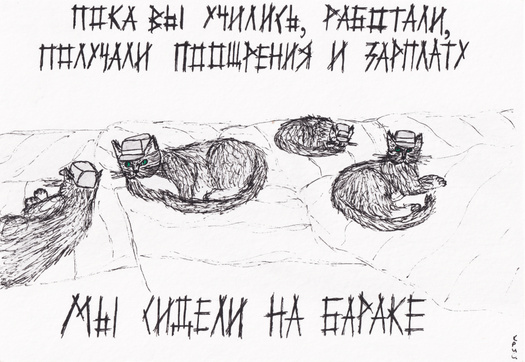 ПОКА ВЫ УЧИЛИСЬ, РАБОТАЛИ,
ПОЛУЧАЛИ ПООЩРЕНИЯ И ЗАРПЛАТУ
МЫ СИДЕЛИ НА БАРАКЕ